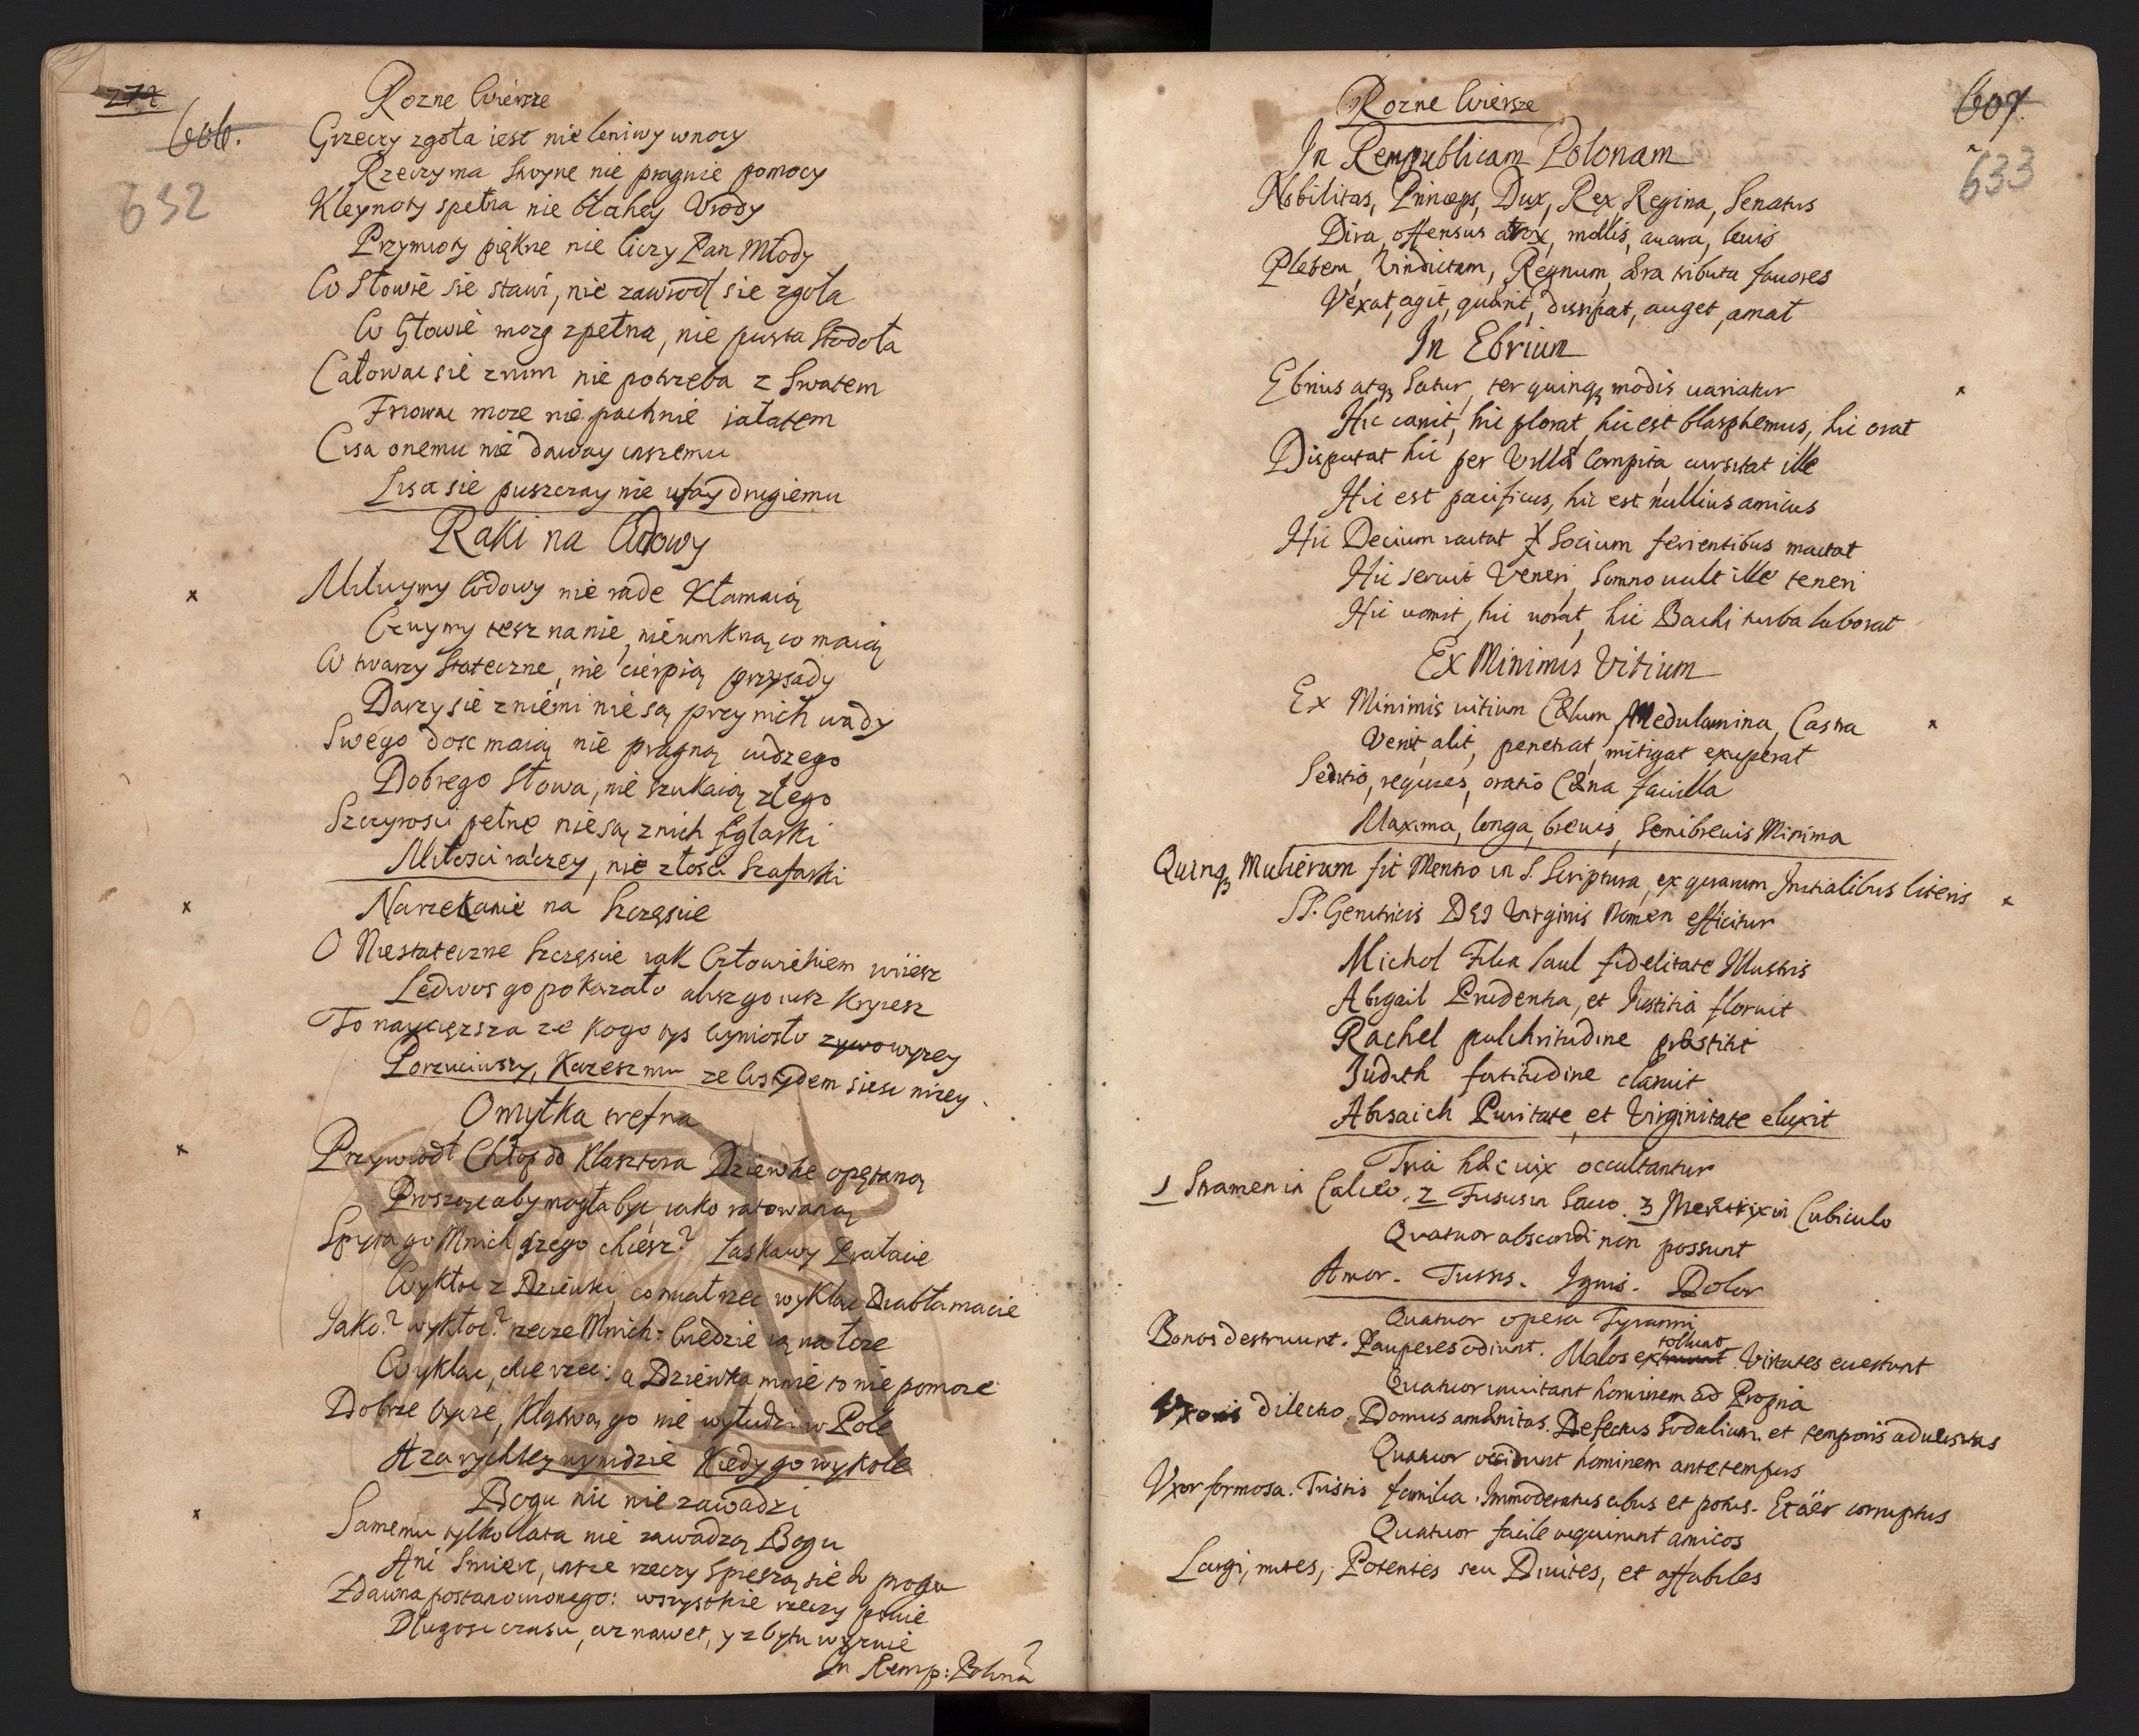 272
606.
632
Rozne Wiersze
Grzeczy zgoła iest nie leniwy wnocy
Rzeczy ma Stroyne nie pragnie pomocy
Kleynoty spełna nie błahey Urody
Przymioty piękne nie liczy Pan Młody
W Słowie sie stawi, nie zawiodł sie zgoła
W Głowie mozg zpełna, nie pusta Stodoła
Całowac sie znim nie potrzeba z Swatem
Frzowac moze nie pachnie
Cisa onemu nie daway inszemu
Lisa sie puszczay nie ufay drugiemu
Raki na Wdowy
Miłuymy Wdowy nie rade Kłamaią
Czuymy tesz na nie, nie umkną co maią
W twarzy Stateczne, nie cierpią przysady
Darzy sie zniemi nie są przy nich wady
Swego dosc maią nie pragną cudzego
Dobrego Słowa, nie szukaią złego
Szczyrosci pełne nie są znich Figlarki
Miłosci raczey, nie złosci Szafarki
Narzekanie na Szczęscie
O Niestateczne Szczęscie iak Człowiekiem wiiesz
Ledwos go pokazało alisz go iusz Kryiesz
To naycięzsza ze kogo tys wyniosło zywo wyzey
Porzuciwszy, Kazesz mu ze Wstydem siesc nizey.
Omyłka trefna
Przywiodł Chłop do Klasztora Dziewke opętaną
Proszącz aby mogła być iako ratowaną
Spyta go Mnich czego chcesz? Łaskawy Prałacie
Wykłoc z Dziewki, co miał rzec wyklac Diabła macie
Jako? wykłoc? rzecze Mnich: Wiedzie ią na łoze
Wyklac, chce rzec: a Dziewka mnie to nie pomoze
Dobrze Xięze, Klątwą go nie wyłudzi w Pole
Aza rychley wynidzie Kiedy go wykole
Bogu nic nie zawadzi
Samemu tylko lata nie zawadzą Bogu
Ani Smierc, insze rzeczy Spieszą sie do progu
Zdawna postanowionego: wszystkie rzeczy psuie
Długosc czasu, az nawet, y z bytu wyzuie
In Remp: Polonã
607.
633
Rozne Wiersze
In Rempublicam Polonam
Nobilitas, Princeps, Dux, Rex Regina, Senatus
Dira, offensus atrox, mollis, auara, leuis
Plebem, Vindictam, Regnum, æra tributa fauores
Vexat, agit, quærit, dissipat, auget, amat
In Ebrium
Ebrius atq₃ Satur, ter quinq₃ modis uariatur
Hic canit, hic plorat, hic est blasphemus, hic orat
Disputat hic per Villas Compita, cursitat ille
Hic est pacificus, hic est nullius amicus
Hic Decium iactat Socium ferientibus mactat
Hic seruit Veneri, Somno uult ille teneri
Hic uomit, hic uorat, hic Bachi turba laborat
Ex Minimis Vitium
Ex Minimis uitium Cælum, Medulamina, Castra
Venit, alit, penetrat, mitigat exuperat
Seditio, requies, oratio Cæna fauilla
Maxima, longa, breuis, Semibreuis Minima
Quinq₃ Mulierum fit Mentio in S. Scriptura, ex quarum Initialibus literis
SS. Genitricis Dei Virginis Nomen efficitur
Michol Filia Saul fidelitate Illustris
Abigail Prudentia, et Iustitiâ floruit
Rachel pulchritudine præstitit
Judith fortitudine claruit
Abisaich Puritate, et Virginitate eluxit
Tria hæc uix occultantur
1 Stramen in Calceo. 2 Fusus in Sacco. 3 Meretrix in Cubiculo
Quatuor abscondi non possunt
Amor. Tussis. Ignis. Dolor
Quatuor opera Tyranni
Bonos destruunt. Pauperes odiunt. Malos extollunt. Virtutes euertunt
Quatuor inuitant hominem ad Propria
Vxoris dilectio. Domus amænitas. Defectus Sodalium. et temporis aduersitas
Quatuor occidunt hominem ante tempus
Vxor formosa. Tristis familia. Immoderatus cibus et potus. Et äer corruptus
Quatuor facile acquirunt amicos
Largi, mites, Potentes seu Diuites, et affabiles